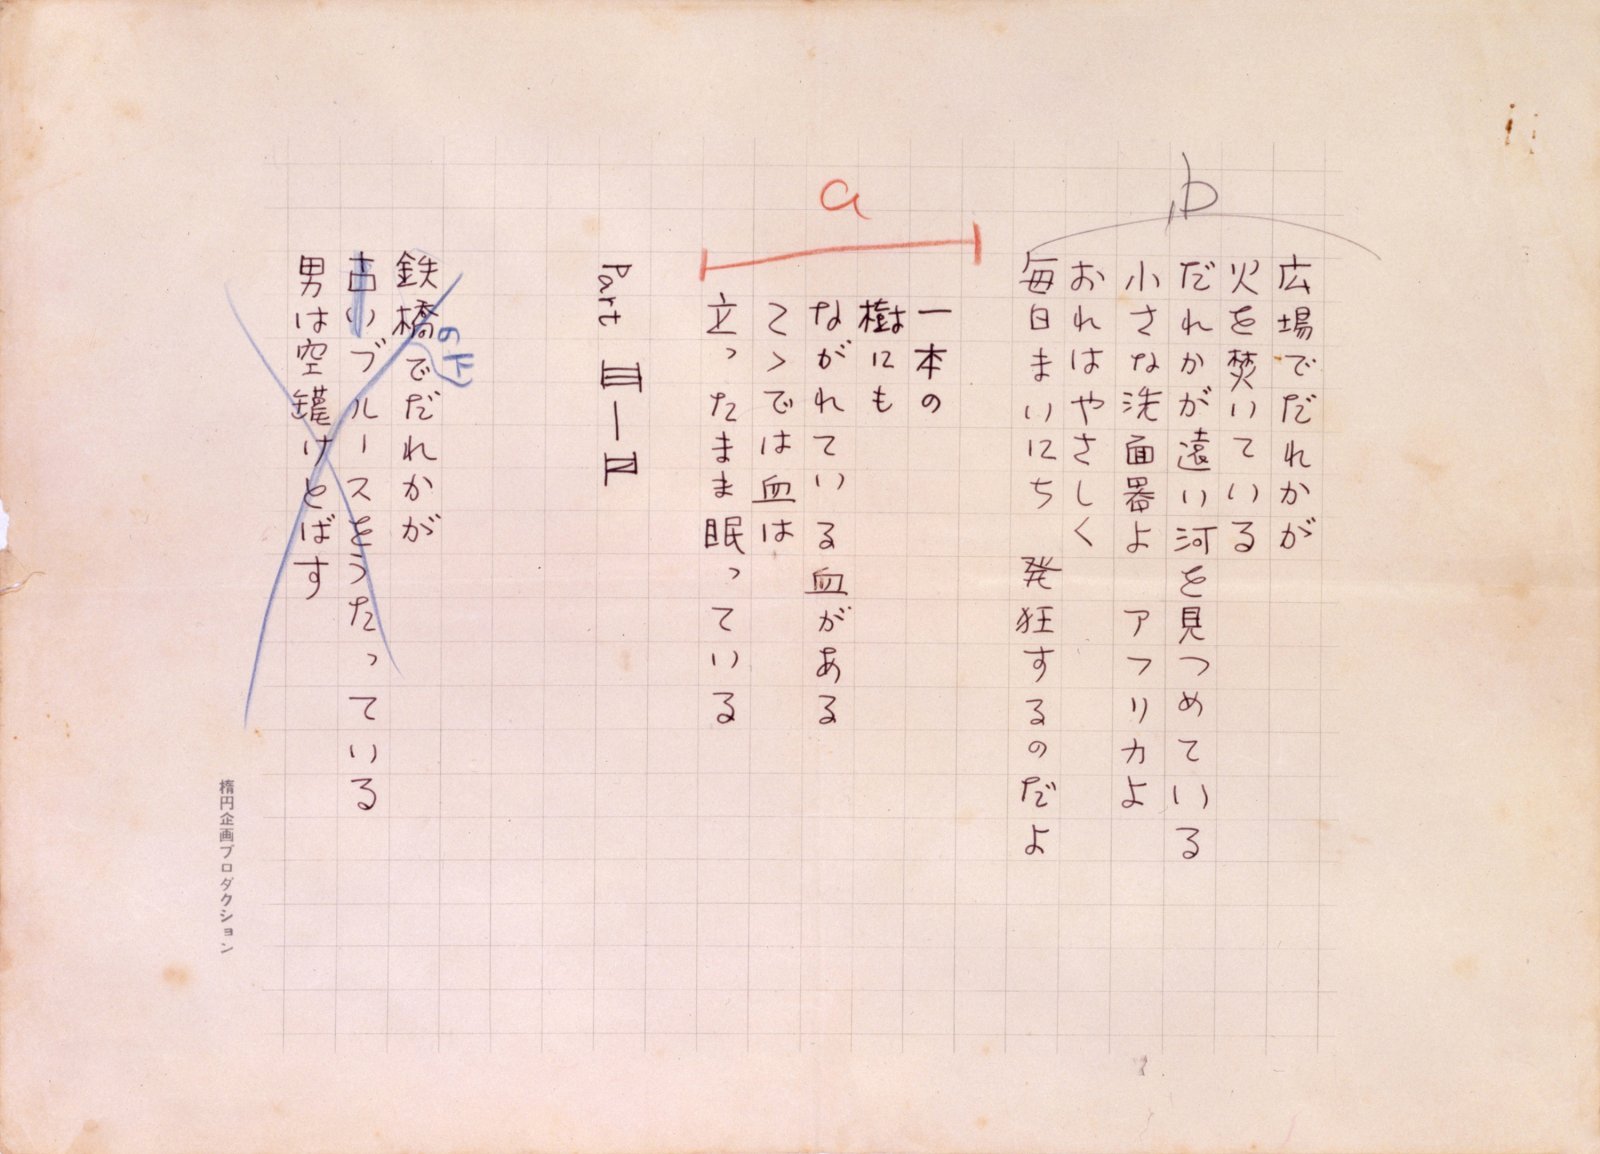 b
広場でだれかが
火を焚いている
だれかが遠い河を見つめている
小さな洗面器よ　アフリカよ
おれはやさしく
毎日まいにち　発狂するのだよ
a
一本の
樹にも
ながれている血がある
そゝでは血は
立ったまま眠っている
Part Ⅲ―Ⅳ
鉄橋でだれかが
の下
古いブルースをうたっている
男は空罐けとばす
楕円企画プロダクション